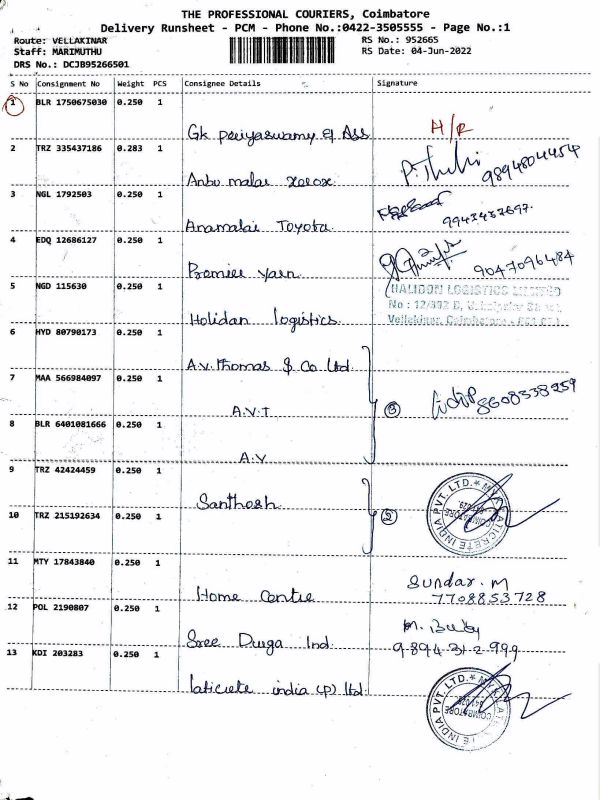 THE PROFESSIONAL COURIERS, Coimbatore
Delivery Runsheet - PCM - Phone No.:0422-3505555 - Page No.:1
Route: VELLAKINAR
RS No.: 952665
Staff: MARIMUTHU
RS Date: 04-Jun-2022
DRS No.: DCJB95266501
S No Consignment No Weight PCS Consignee Details Signature
1 BLR 1750675030 0.250 1
Gk periyaswamy & Ass H/R
2 TRZ 335437186 0.283 1
Anbu malar xerox 9894804454
3 NGL 1792503 0.250 1
Anamalai Toyota 9943432697
4 EDQ 12686127 0.250 1
Premier yarn 9047096484
5 NGD 115630 0.250 1
HALIDON LOGISTICS LIMITED
Holidan logistics
Vellakinar, Coimbatore
6 HYD 80790173 0.250 1
A.V. Thomas & Co Ltd
7 MAA 566984097 0.250 1
A.V.T 3 8608338259
8 BLR 6401081666 0.250 1
A.V
9 TRZ 42424459 0.250 1
Santhosh
10 TRZ 215192634 0.250 1 2
COIMBATORE
11 MTY 17843840 0.250 1
Home Centre Sundar. M
7708853728
12 POL 2190807 0.250 1
Sree Durga Ind. 9894312999
13 KDI 203283 0.250 1
laticrete india (P) ltd
COIMBATORE